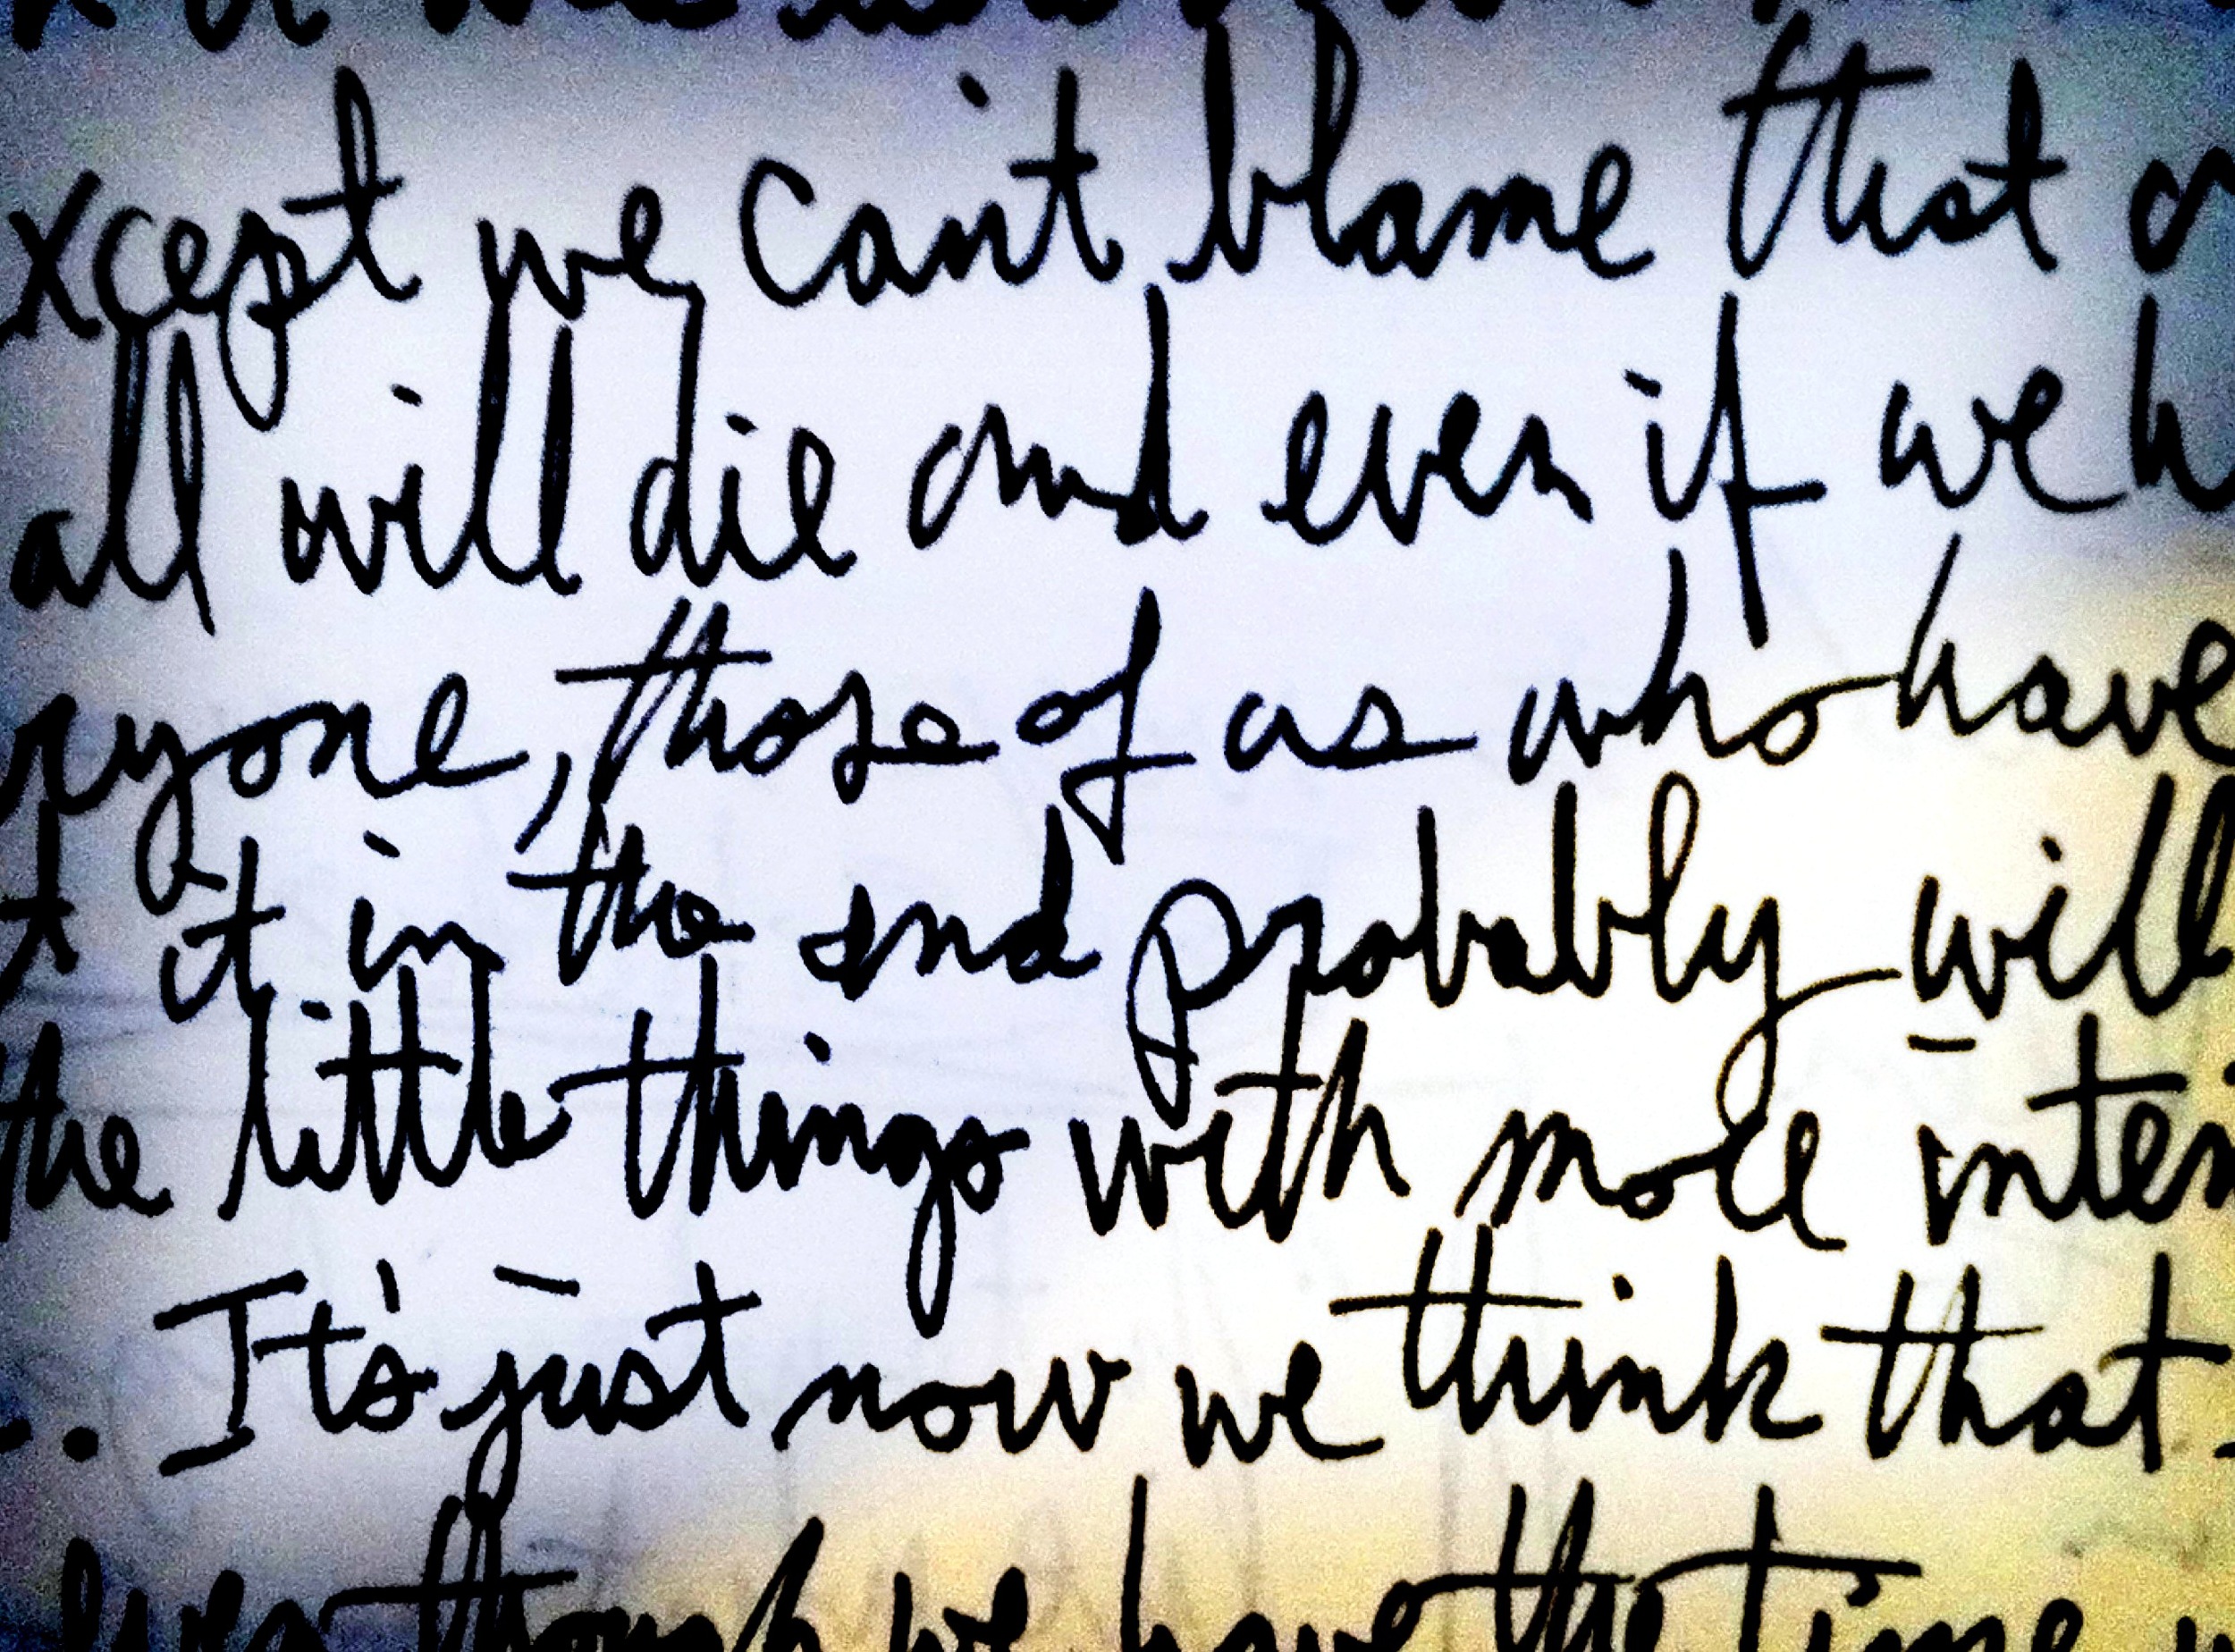 xcept we can't blame that
all will die and even if we h
ryone, those of us who have
t it in the end probably will
the little things with more inten
.. It's just now we think that
even though we have the time